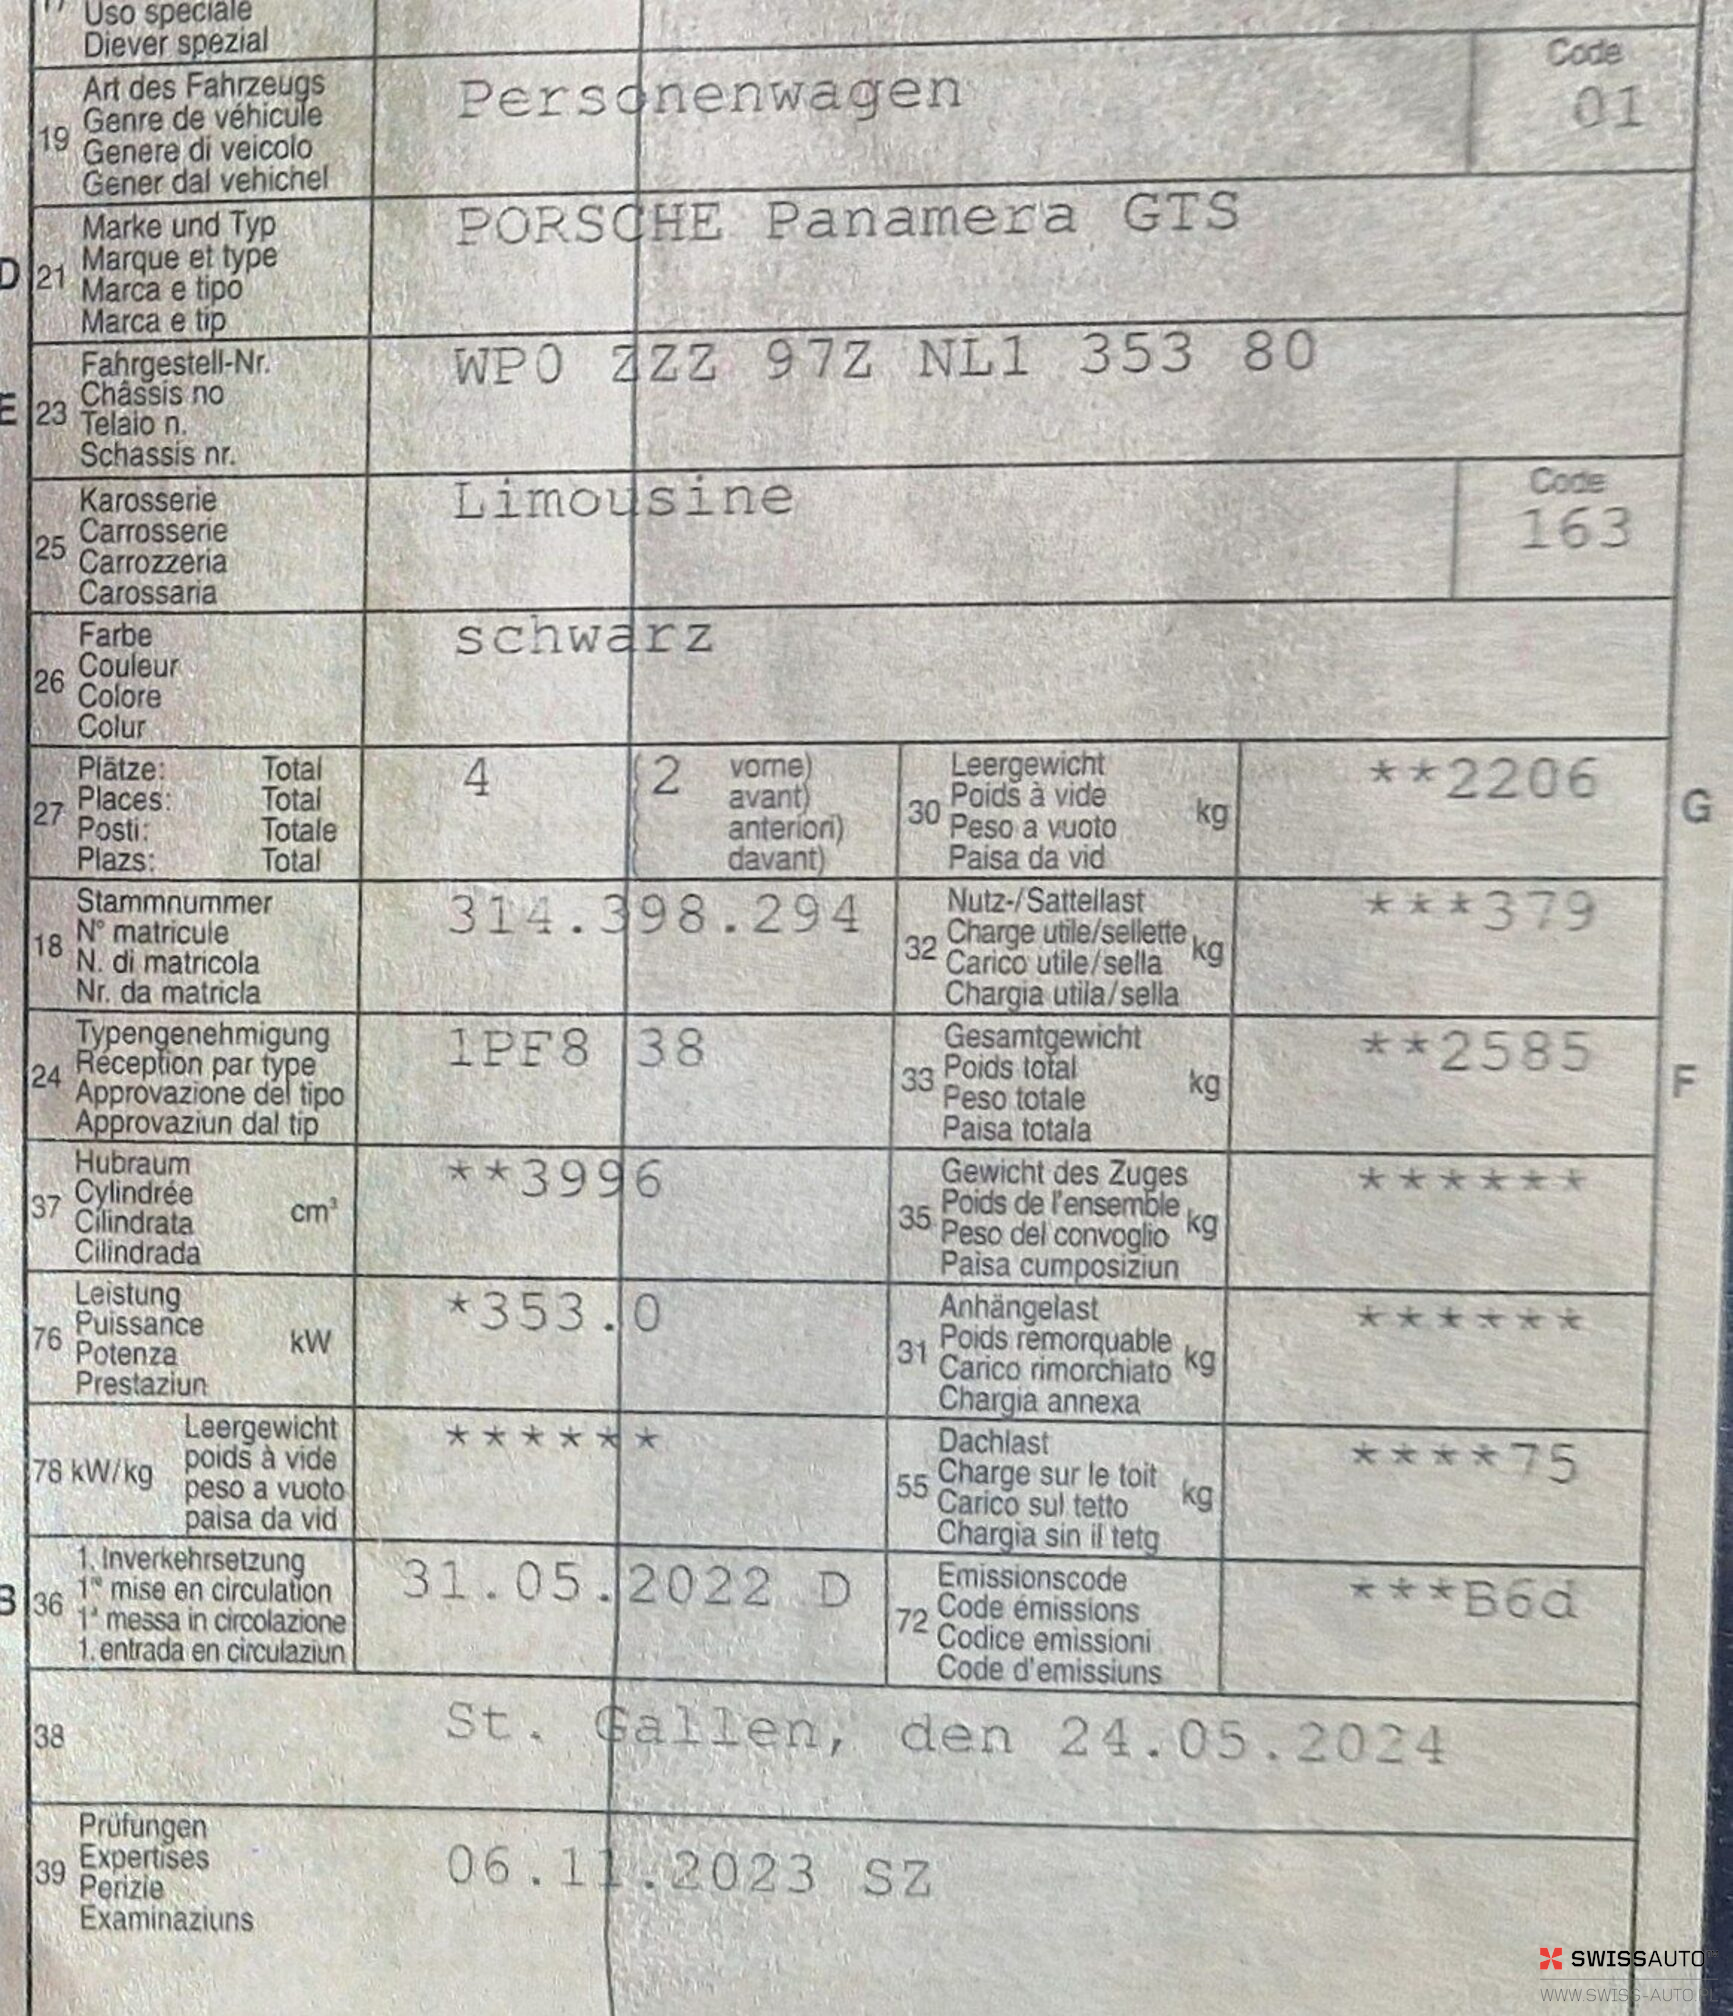 17 Uso speciale
Diever spezial
Art des Fahrzeugs Personenwagen Code
19 Genre de véhicule 01
Genere di veicolo
Gener dal vehichel
Marke und Typ PORSCHE Panamera GTS
D 21 Marque et type
Marca e tipo
Marca e tip
Fahrgestell-Nr. WP0 ZZZ 97Z NL1 353 80
E 23 Châssis no
Telaio n.
Schassis nr.
Karosserie Limousine Code
25 Carrosserie 163
Carrozzeria
Carossaria
Farbe schwarz
26 Couleur
Colore
Colur
27 Plätze: Total 4 (2 vorne)
Places: Total avant)
Posti: Totale anteriori)
Plazs: Total davant)
30 Leergewicht kg **2206 G
Poids à vide
Peso a vuoto
Paisa da vid
18 Stammnummer 314.398.294
N° matricule
N. di matricola
Nr. da matricla
32 Nutz-/Sattellast kg ***379
Charge utile/sellette
Carico utile/sella
Chargia utila/sella
24 Typengenehmigung 1PF8 38
Réception par type
Approvazione del tipo
Approvaziun dal tip
33 Gesamtgewicht kg **2585 F
Poids total
Peso totale
Paisa totala
37 Hubraum cm³ **3996
Cylindrée
Cilindrata
Cilindrada
35 Gewicht des Zuges kg ******
Poids de l'ensemble
Peso del convoglio
Paisa cumposiziun
76 Leistung kW *353.0
Puissance
Potenza
Prestaziun
31 Anhängelast kg ******
Poids remorquable
Carico rimorchiato
Chargia annexa
78 kW/kg Leergewicht ******
poids à vide
peso a vuoto
paisa da vid
55 Dachlast kg ****75
Charge sur le toit
Carico sul tetto
Chargia sin il tetg
B 36 1. Inverkehrsetzung 31.05.2022 D
1re mise en circulation
1a messa in circolazione
1. entrada en circulaziun
72 Emissionscode ***B6d
Code émissions
Codice emissioni
Code d'emissiuns
38 St. Gallen, den 24.05.2024
Prüfungen 06.11.2023 SZ
39 Expertises
Perizie
Examinaziuns
SWISSAUTO
WWW.SWISS-AUTO.PL